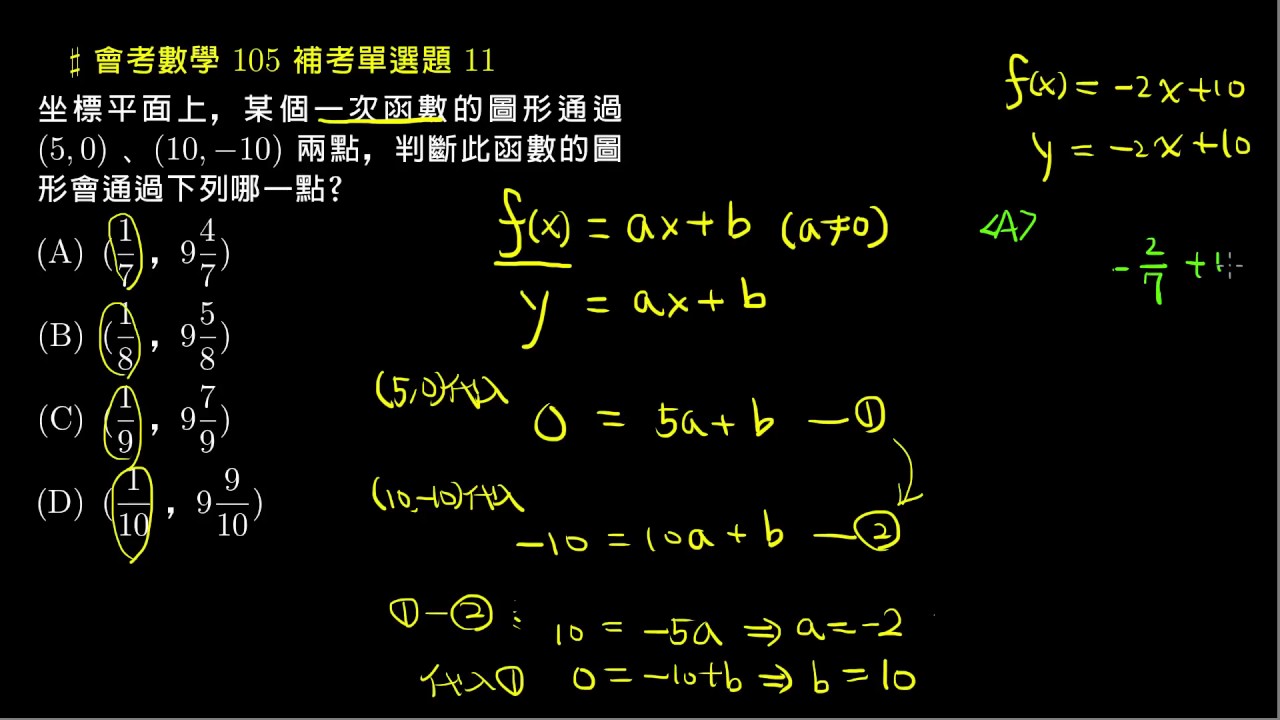 ♯ 會考數學 105 補考單選題 11
坐標平面上，某個一次函數的圖形通過
(5, 0) 、(10, −10) 兩點，判斷此函數的圖
形會通過下列哪一點?
(A) (1/7 , 9 4/7)
(B) (1/8 , 9 5/8)
(C) (1/9 , 9 7/9)
(D) (1/10 , 9 9/10)
f(x) = ax + b (a≠0)
y = ax + b
(5,0)代入
0 = 5a + b —①
(10,-10)代入
-10 = 10a + b —②
①-②: 10 = -5a ⇒ a = -2
代入① 0 = -10+b ⇒ b = 10
f(x) = -2x+10
y = -2x+10
<A>
-2/7 +